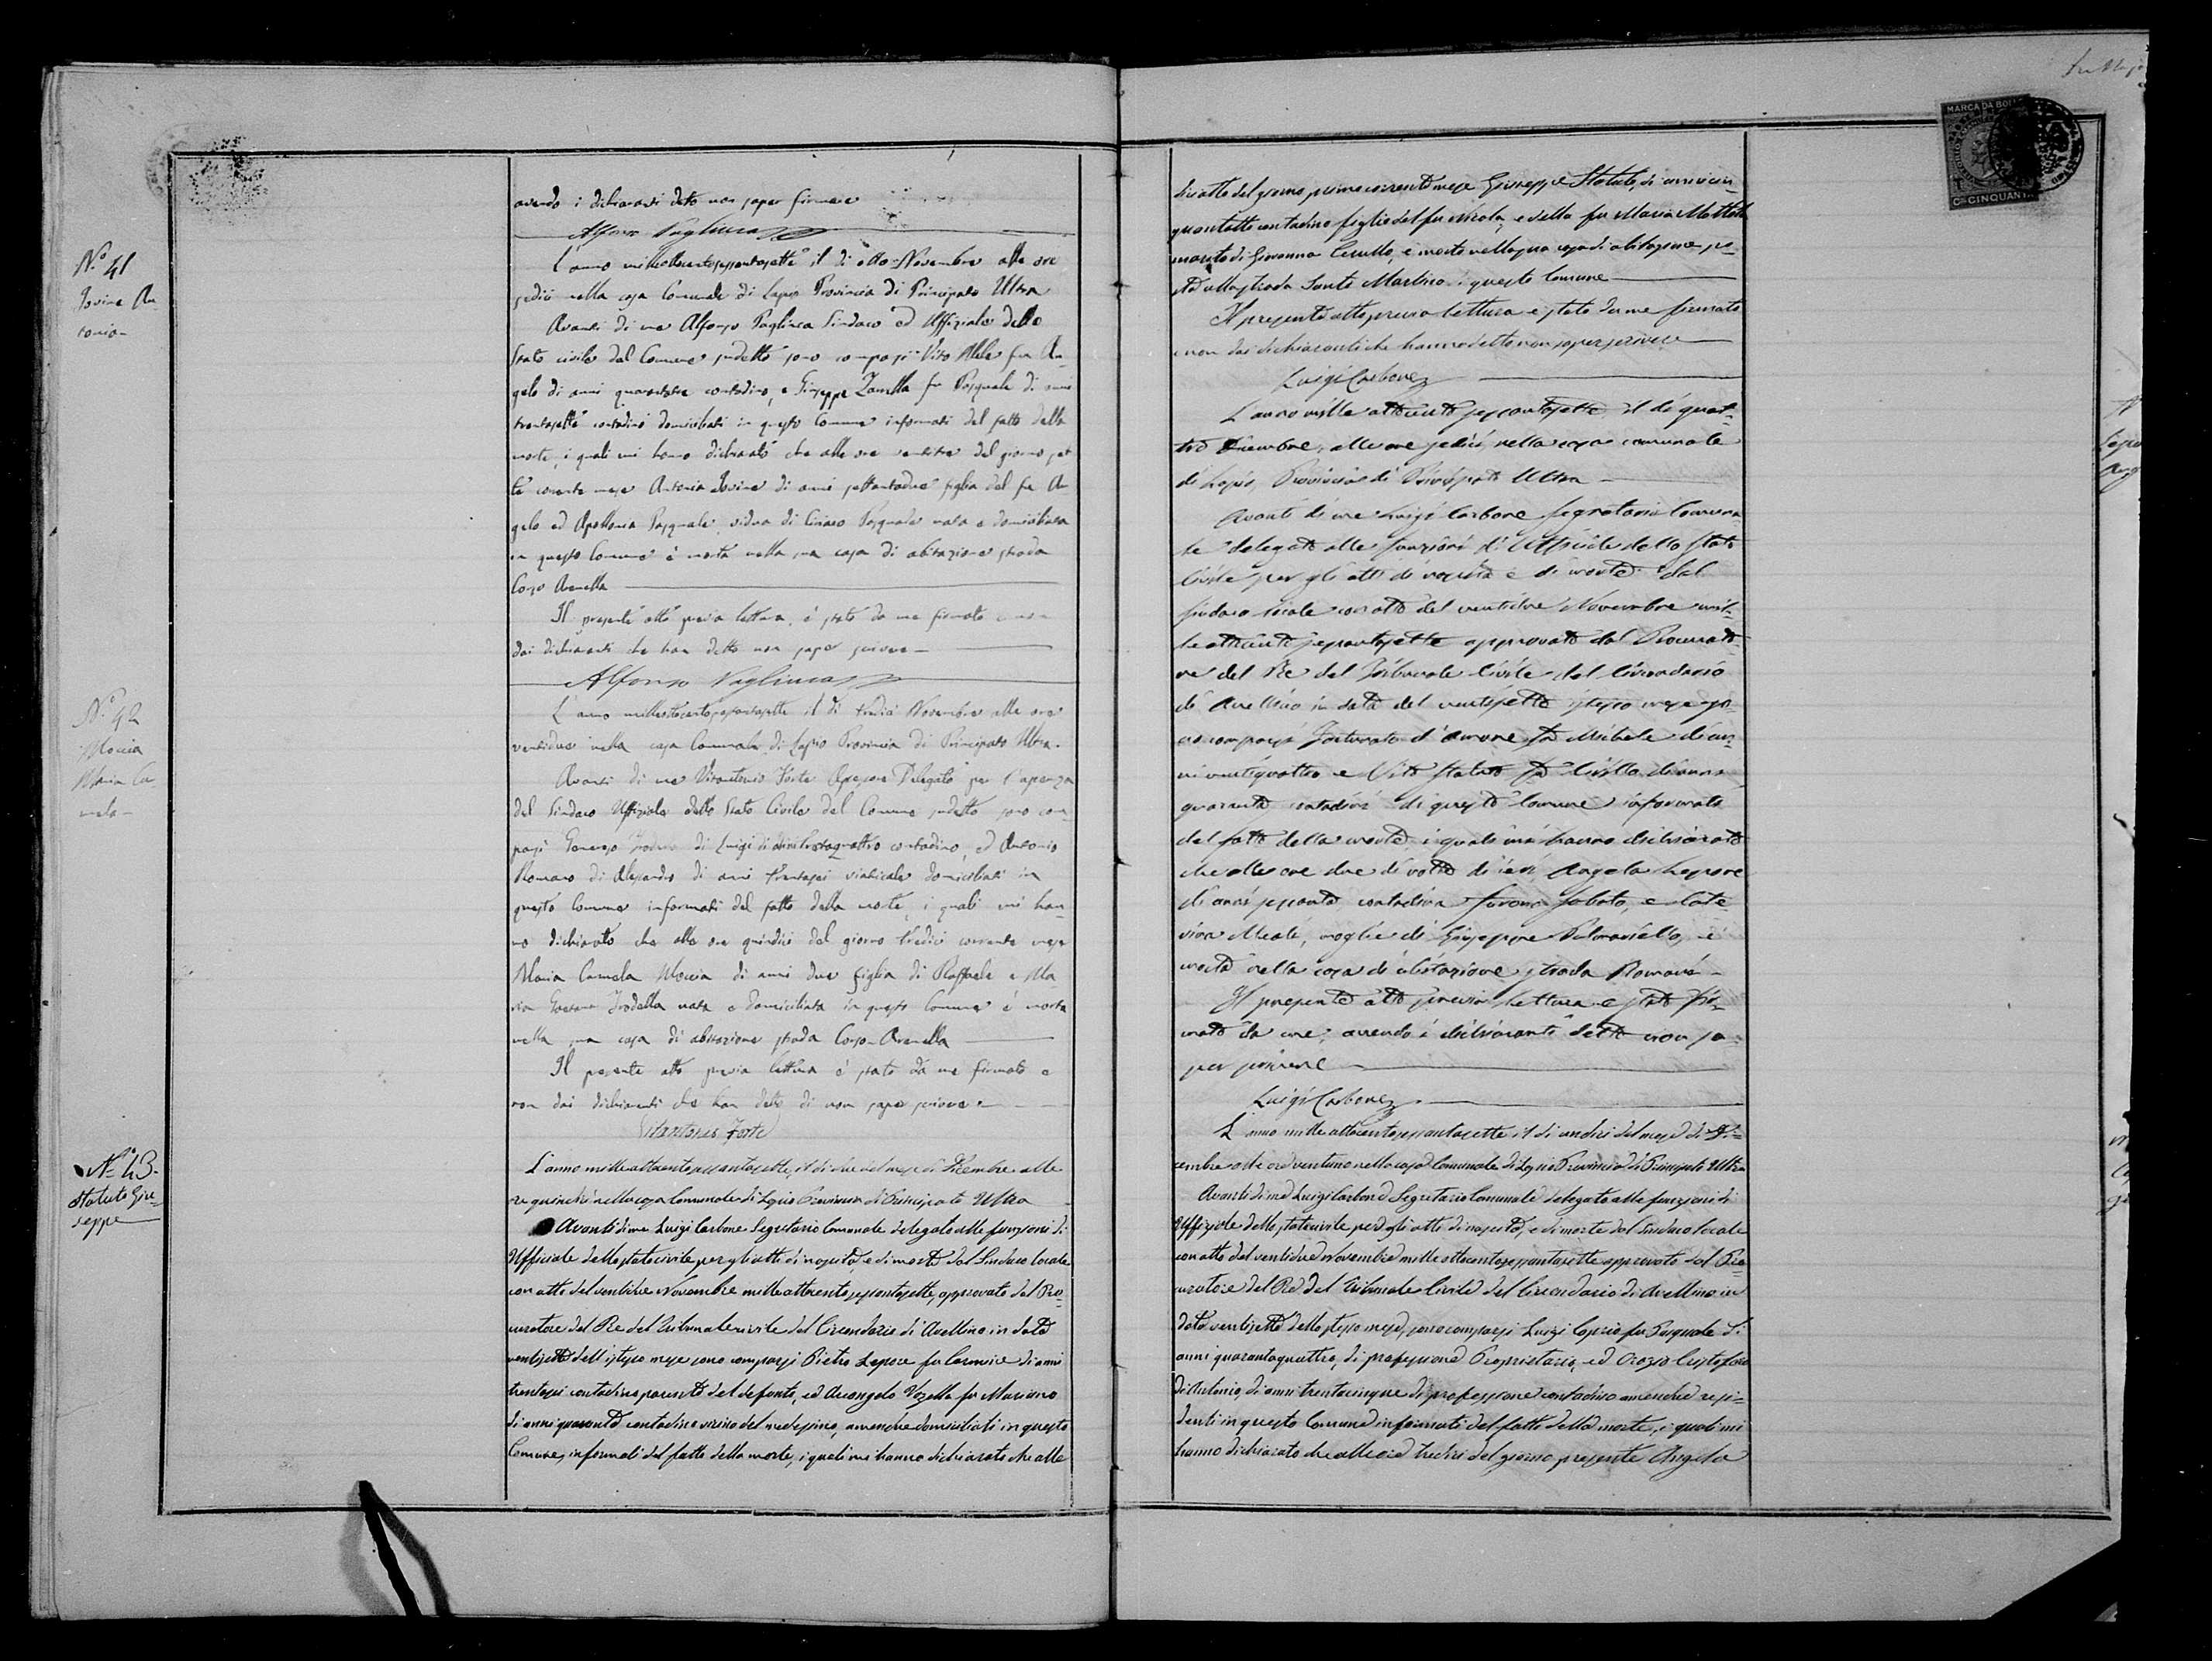 avendo i dichiaranti detto non saper firmare
Alfonso Pagliuca
N.º 41
Iovine An
tonia
L'anno milleottocentosessantasette il dì otto Novembre alle ore
sedici nella casa Comunale di Lapio Provincia di Principato Ultra
Avanti di me Alfonso Pagliuca Sindaco ed Uffiziale dello
Stato civile del Comune sudetto sono comparsi Vito Mele fu An
gelo di anni quarantatre contadino, e Giuseppe Zarrella fu Pasquale di anni
trentasette contadini domiciliati in questo Comune informati del fatto della
morte, i quali mi hanno dichiarato che alle ore ventitre del giorno set
te corrente mese Antonia Iovine di anni settantadue figlia del fu An
gelo ed Apollonia Pasquale vedova di Ciriaco Pasquale nata e domiciliata
in questo Comune è morta nella sua casa di abitazione strada
Corso Arenella
Il presente atto previa lettura, è stato da me firmato e non
dai dichiaranti che han detto non saper scrivere
Alfonso Pagliuca
N.º 42
Moccia
Maria Ca
mela
L'anno milleottocentosessantasette il dì tredici Novembre alle ore
ventidue nella casa Comunale di Lapio Provincia di Principato Ultra.
Avanti di me Vitantonio Forte Assessore Delegato per l'assenza
del Sindaco Uffiziale dello Stato Civile del Comune sudetto sono com
parsi di Luigi di anni trentaquattro contadino, ed Antonio
Romano di Alessandro di anni trentasei viaticale domiciliati in
questo Comune informati del fatto della morte, i quali mi han
no dichiarato che alle ore quindici del giorno tredici corrente mese
Maria Carmela Moccia di anni due figlia di Raffaele e Ma
ria nata e domiciliata in questo Comune è morta
nella sua casa di abitazione strada Corso Arenella
Il presente atto previa lettura è stato da me firmato e
non dai dichiaranti che han detto di non saper scrivere
Vitantonio Forte
N.º 43.
Statuto Giu=
seppe
L'anno milleottocentosessantasette, il dì due del mese di Dicembre alle
ore quindici nella casa Comunale di Lapio Provincia di Principato Ultra
Avanti di me Luigi Carbone Segretario Comunale delegato alle funzioni di
Ufficiale dello stato civile per gli atti di nascita, e di morte dal Sindaco locale
con atto del ventidue Novembre milleottocentosessantasette, approvato dal Pro=
curatore del Re del Tribunale civile del Circondario di Avellino in data
ventisette dell'istesso mese sono comparsi Pietro Lepore fu Carmine di anni
trentasei contadino parente del defunto, ed Arcangelo Vozella fu Mariano
di anni quaranta contadino vicino del medesimo, amendue domiciliati in questo
Comune, informati del fatto della morte, i quali mi hanno dichiarato che alle
dieciotto del giorno primo corrente mese Giuseppe Statuto, di anni cin=
quantotto contadino figlio del fu Nicola, e della fu Maria
marito di Giovanna Cerullo, è morto nella sua casa di abitazione po=
sta alla strada Santo Martino di questo Comune
Il presente atto previa lettura è stato da me firmato
e non dai dichiaranti che hanno detto non saper scrivere
Luigi Carbone
L'anno mille ottocento sessantasette il dì quat=
tro Dicembre, alle ore sedici, nella casa comunale
di Lapio, Provincia di Principato Ultra
Avanti di me Luigi Carbone Segretario Comuna
le delegato alle funzioni di Ufficiale dello Stato
Civile per gli atti di nascita e di morte dal
Sindaco locale con atto del ventidue Novembre mil=
le ottocento sessantasette approvato dal Procurato
re del Re del Tribunale Civile del Circondario
di Avellino in data del ventisette istesso mese so=
no comparsi Fortunato d'Amore fu Michele di an=
ni ventiquattro e Vito Statuto fu Civillo di anni
quaranta contadini di questo Comune informati
del fatto della morte, i quali mi hanno dichiarato
che alle ore due di notte di ieri Angela Lepore
di anni sessanta contadina furono Sabato, e Cate=
rina Meoli, moglie di Giuseppe Palmariello, è
morta nella casa di abitazione strada Romani
Il presente atto previa lettura è stato fir=
mato da me; avendo i dichiaranti detto non sa=
per scrivere
Luigi Carbone
L'anno mille ottocentosessantasette il dì undici del mese di Di=
cembre alle ore ventuno nella casa Comunale di Lapio Provincia di Principato Ultra
Avanti di me Luigi Carbone Segretario Comunale delegato alle funzioni di
Uffiziale dello stato civile per gli atti di nascita, e di morte dal Sindaco locale
con atto del ventidue Novembre mille ottocentosessantasette approvato dal Pro=
curatore del Re del Tribunale Civile del Circondario di Avellino in
data ventisette dello stesso mese, sono comparsi Luigi Caprio fu Pasquale di
anni quarantaquattro, di professione Proprietario, ed Orazio Cristofaro
di Antonio, di anni trentacinque di professione contadino amendue resi=
denti in questo Comune informati del fatto della morte, i quali mi
hanno dichiarato che alle ore tredici del giorno presente Angela
MARCA DA BOLLO
C. CINQUANTA